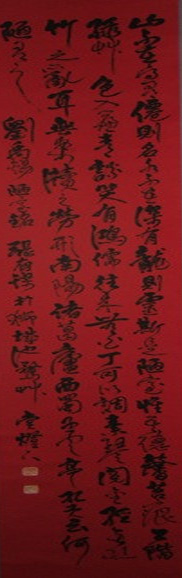 山不在高有僊則名水不在深有龍則靈斯是陋室惟吾德馨苔痕上階
綠艸色入簾青談笑有鴻儒往來無白丁可以調素琴閱金經無絲
竹之亂耳無案牘之勞形南陽諸葛廬西蜀子雲亭孔子云何
陋之有 劉禹錫 陋室銘